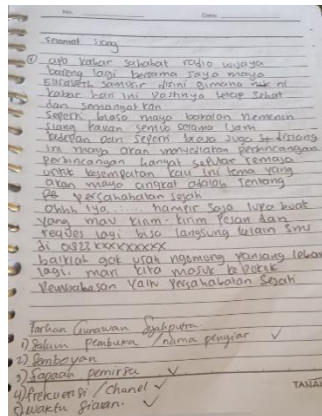 No. Date
Selamat siang
apa kabar sahabat radio wijaya
bareng lagi bersama saya maya
Elisabeth Samosir disini gimana nih ni
kabar hari ini pastinya tetap sehat
dan semangat kan
Seperti biasa maya bakalan nemenin
siang kawan semua selama 1 jam
kedepan dan seperti biasa juga disiang
ini maya akan menyediakan perbincangan
perbincangan hangat seputar remaja
untuk kesempatan kali ini tema yang
akan maya angkat adalah tentang
Pe persahabatan sejati
Ohhh iya..... hampir saja lupa buat
yang mau kirim-kirim pesan dan
reques lagi bisa langsung lewat sms
di 0823xxxxxxxxx
baiklah gak usah ngomong panjang lebar
lagi. mari kita masuk ke pokok
Pembahasan yaitu Persahabatan Sejati
Farhan Gunawan Syahputra.
1) Salam pembuka / nama penyiar ✓
2) Semboyan
3) Sapaan pemirsa ✓
4) frekuensi / chanel ✓
5) waktu siaran. ✓